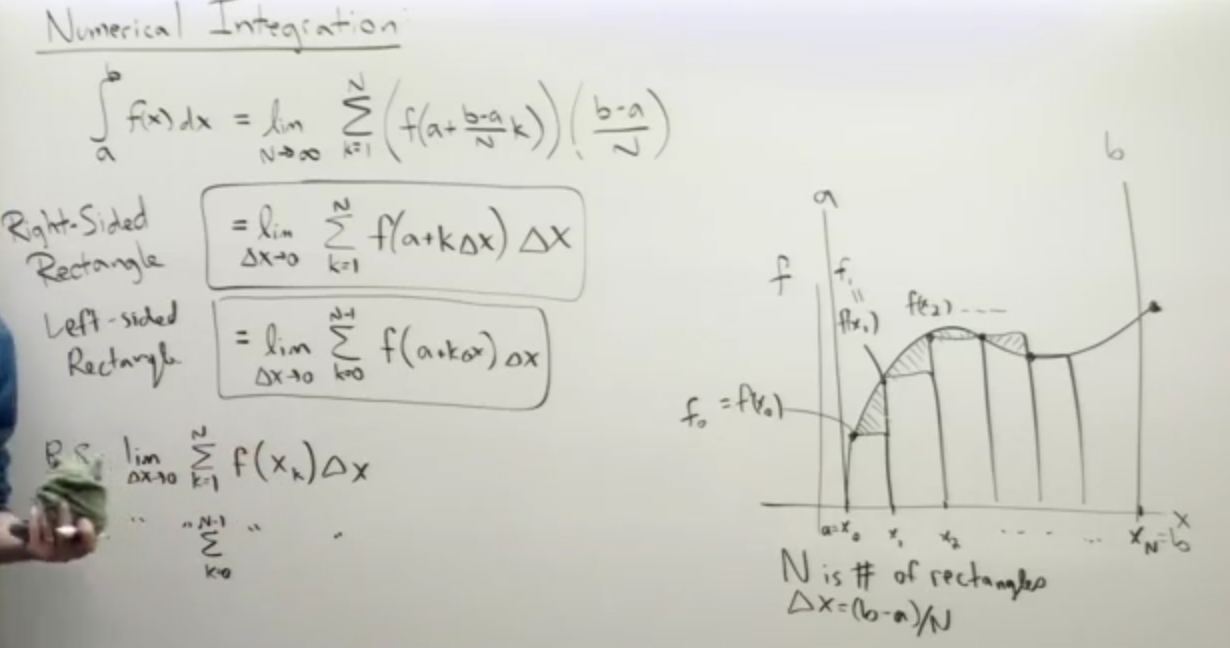 Numerical Integration
∫_a^b f(x) dx = lim_{N→∞} Σ_{k=1}^{N} (f(a+\frac{b-a}{N}k)) (\frac{b-a}{N})
Right-Sided
Rectangle
= lim_{Δx→0} Σ_{k=1}^{N} f(a+kΔx) Δx
Left-sided
Rectangle
= lim_{Δx→0} Σ_{k=0}^{N-1} f(a+kΔx) Δx
lim_{Δx→0} Σ_{k=1}^{N} f(x_k) Δx
" " Σ_{k=0}^{N-1} " "
a
b
f
f_1
=
f(x_1)
f(x_2) ----
f_0 = f(x_0)
a=x_0 x_1 x_2 .... ... x_N=b
x
N is # of rectangles
Δx=(b-a)/N